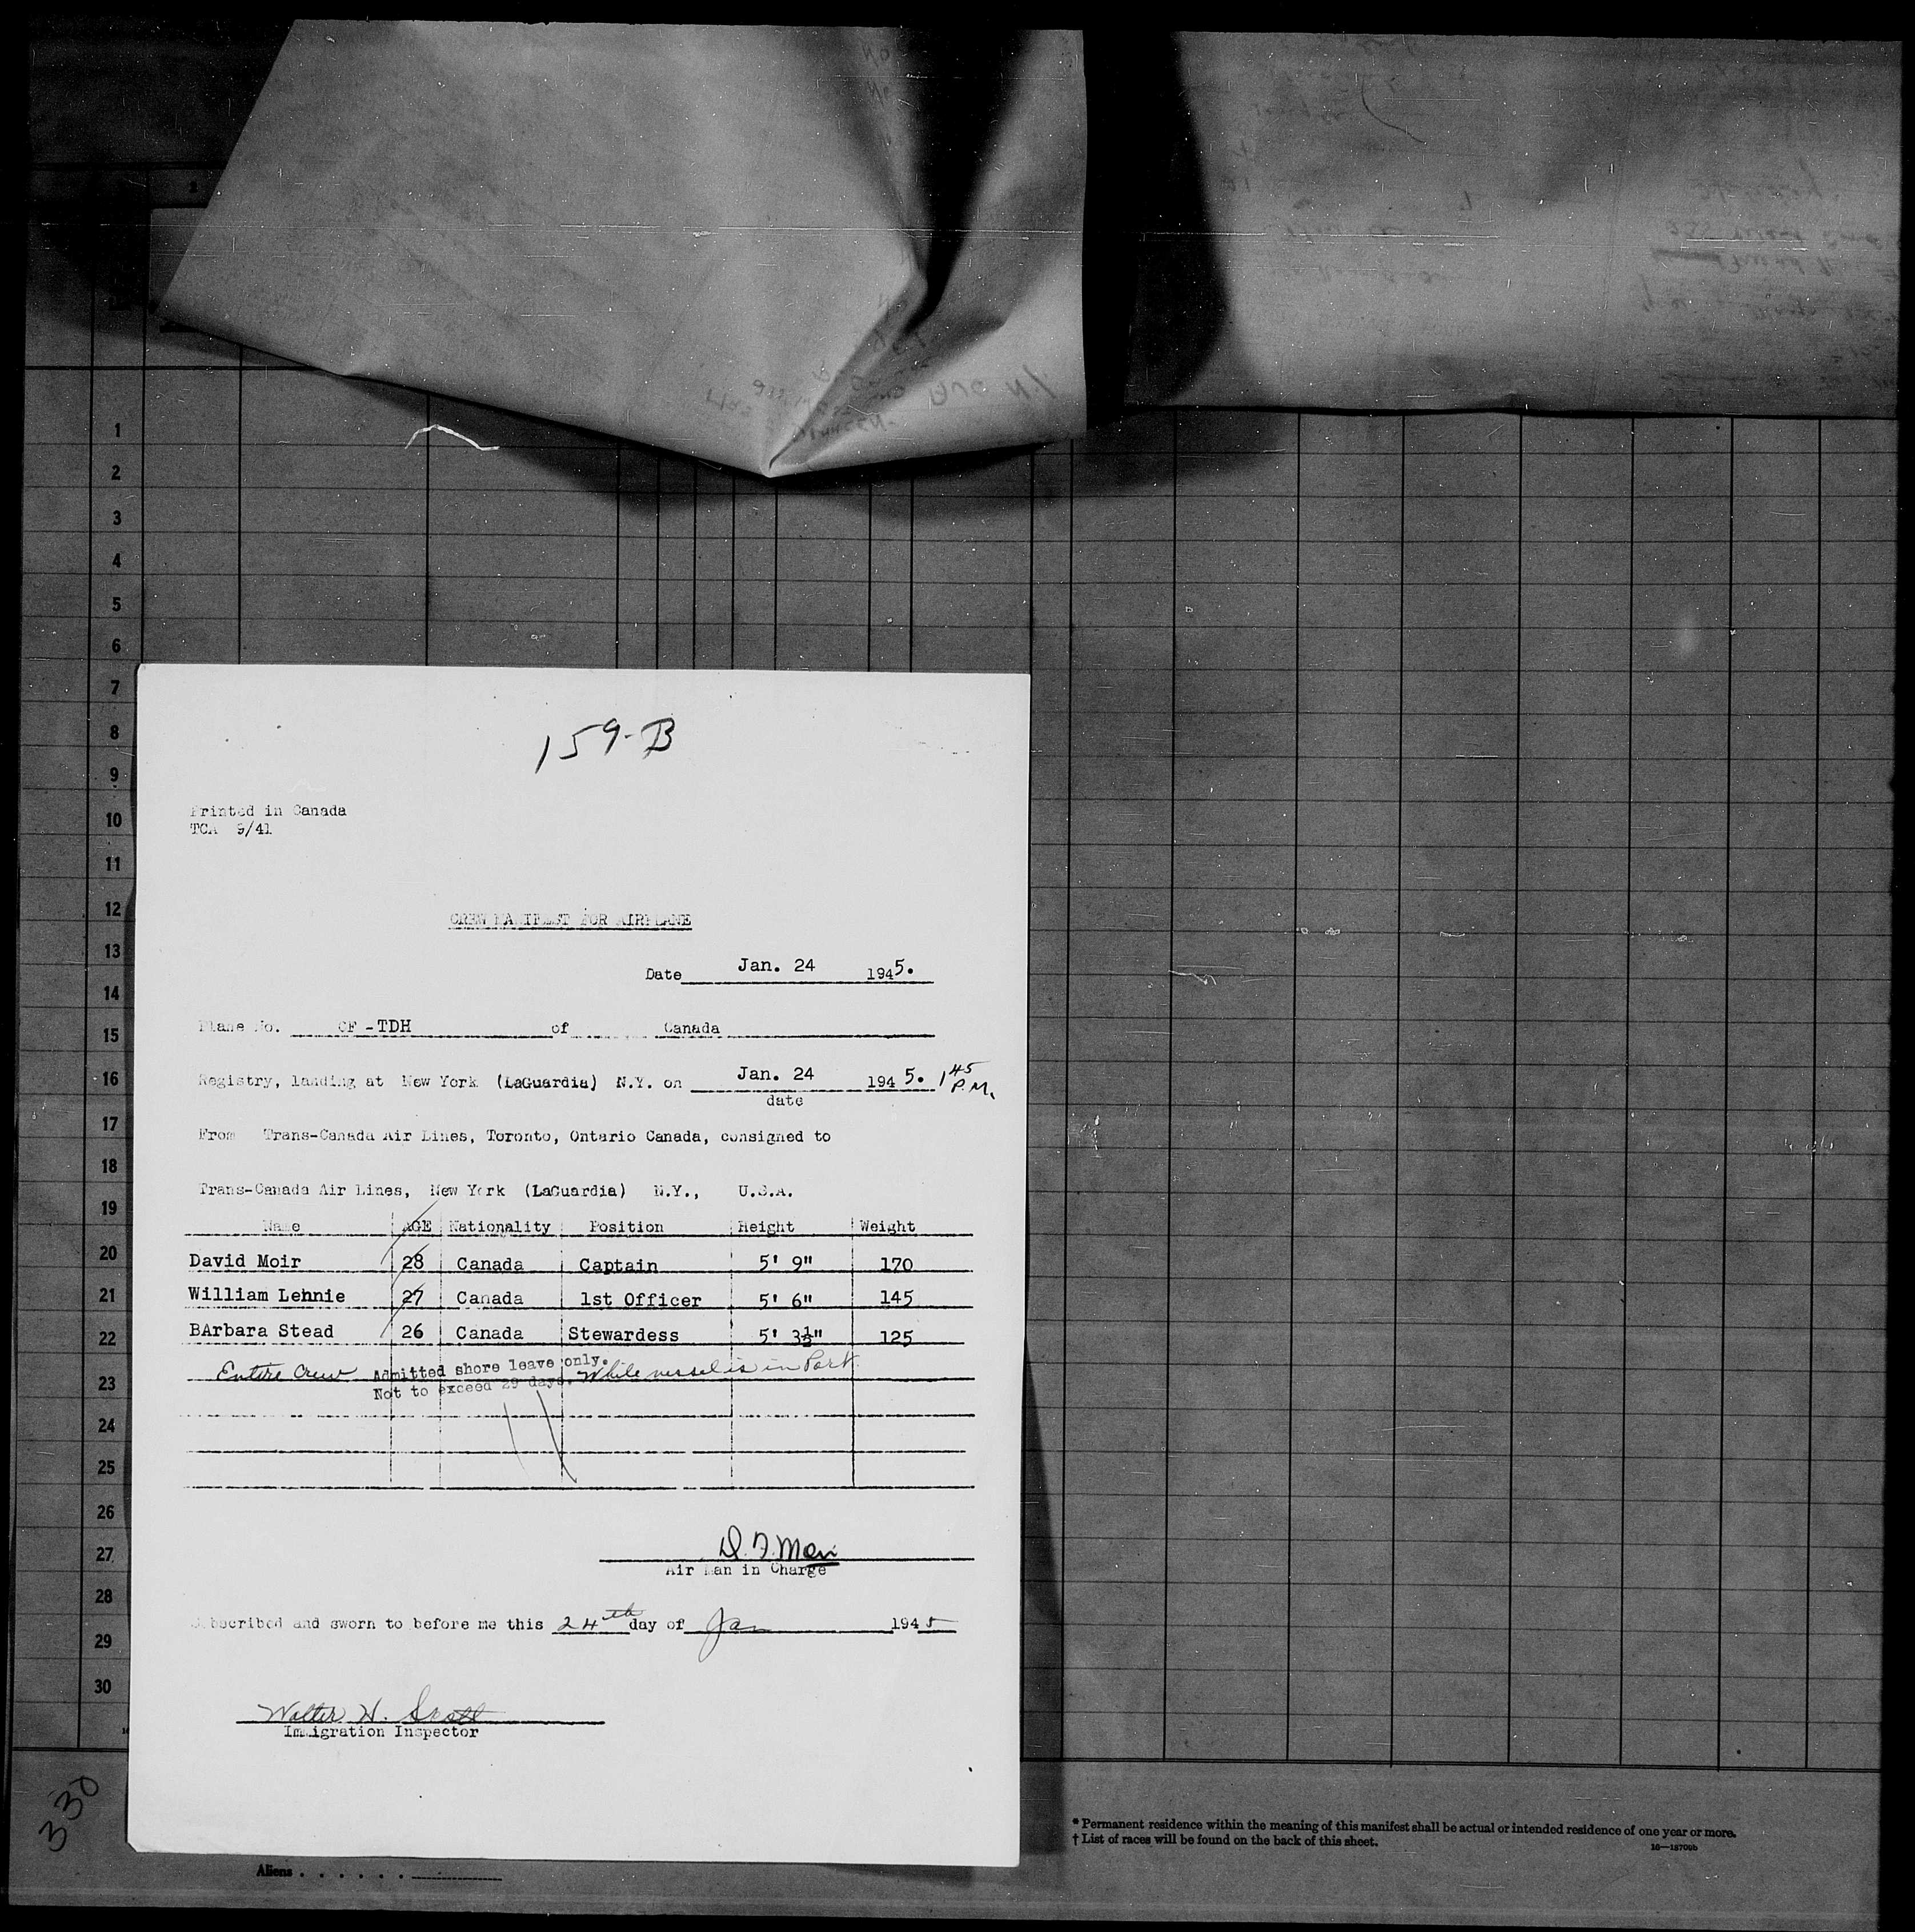 1
2
3
4
5
6
7
8
9
10
11
12
13
14
15
16
17
18
19
20
21
22
23
24
25
26
27
28
29
30
159-B
Printed in Canada
TCA 9/41
CREW MANIFEST FOR AIRPLANE
Date Jan. 24 1945.
Plane No. CF-TDH of Canada
Registry, landing at New York (LaGuardia) N.Y. on Jan. 24 1945. 1 45 P.M.
date
From Trans-Canada Air Lines, Toronto, Ontario Canada, consigned to
Trans-Canada Air Lines, New York (LaGuardia) N.Y., U.S.A.
Name AGE Nationality Position Height Weight
David Moir 28 Canada Captain 5' 9" 170
William Lehnie 27 Canada 1st Officer 5' 6" 145
BArbara Stead 26 Canada Stewardess 5' 3½" 125
Entire Crew Admitted shore leave only. While vessel is in Port
Not to exceed 29 days.
D. F. Moir
Air Man in Charge
Subscribed and sworn to before me this 24th day of Jan 1945
Walter H. Scott
Immigration Inspector
330
* Permanent residence within the meaning of this manifest shall be actual or intended residence of one year or more.
† List of races will be found on the back of this sheet.
Aliens